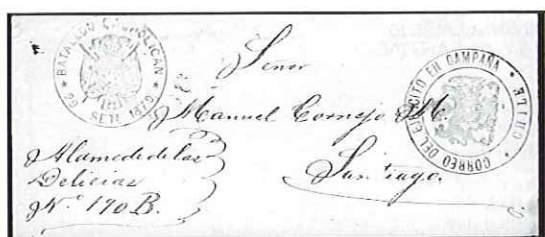 * BATALLON CHACAPOLICAN *
SETE 1879
Señor
Manuel Cornejo M.
Santiago.
Alameda de las
Delicias
Nº 190 B.
CORREO DEL EJERCITO EN CAMPAÑA
* CHILE *